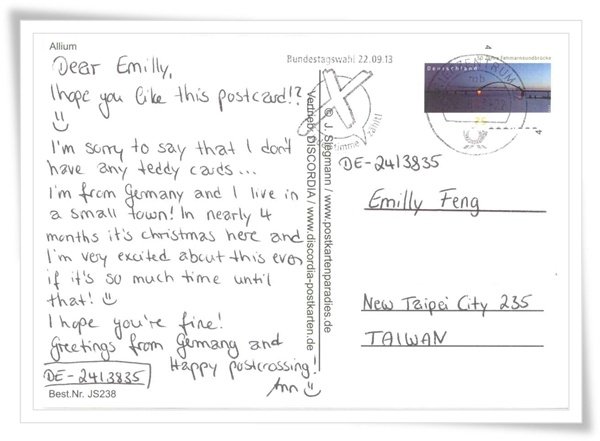 Allium
Dear Emilly,
I hope you like this postcard!?
I'm sorry to say that I don't
have any teddy cards...
I'm from Germany and I live in
a small town! In nearly 4
months it's christmas here and
I'm very excited about this even
if it's so much time until
that!
I hope you're fine!
Greetings from Germany and
Happy postcrossing!
Ann
DE-2413835
Best.Nr. JS238
© J. Siegmann / www.postkartenparadies.de
Vertrieb: DISCORDIA / www.discordia-postkarten.de
Bundestagswahl 22.09.13
stimme zählt!
50 Jahre Fehmarnsundbrücke
Deutschland
DE-2413835
Emilly Feng
New Taipei City 235
TAIWAN